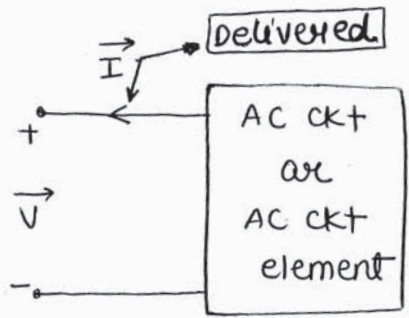 Delivered
I
+
AC ckt
or
AC ckt
element
V
-